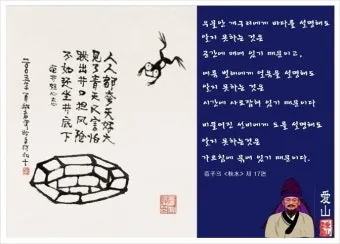 人人都夸天好大
见了青天又害怕
跳出井口担风险
不如还坐井底下
우물안 개구리에게 바다를 설명해도
알지 못하는것은
공간에 매여 있기 때문이고,
여름 벌레에게 얼음을 설명해도
알지 못하는것은
시간에 사로잡혀 있기 때문이다
비뚤어진 선비에게 도를 설명해도
알지 못하는것은
가르침에 묶여 있기 때문이다.
莊子의 <秋水> 제 17편
愛山